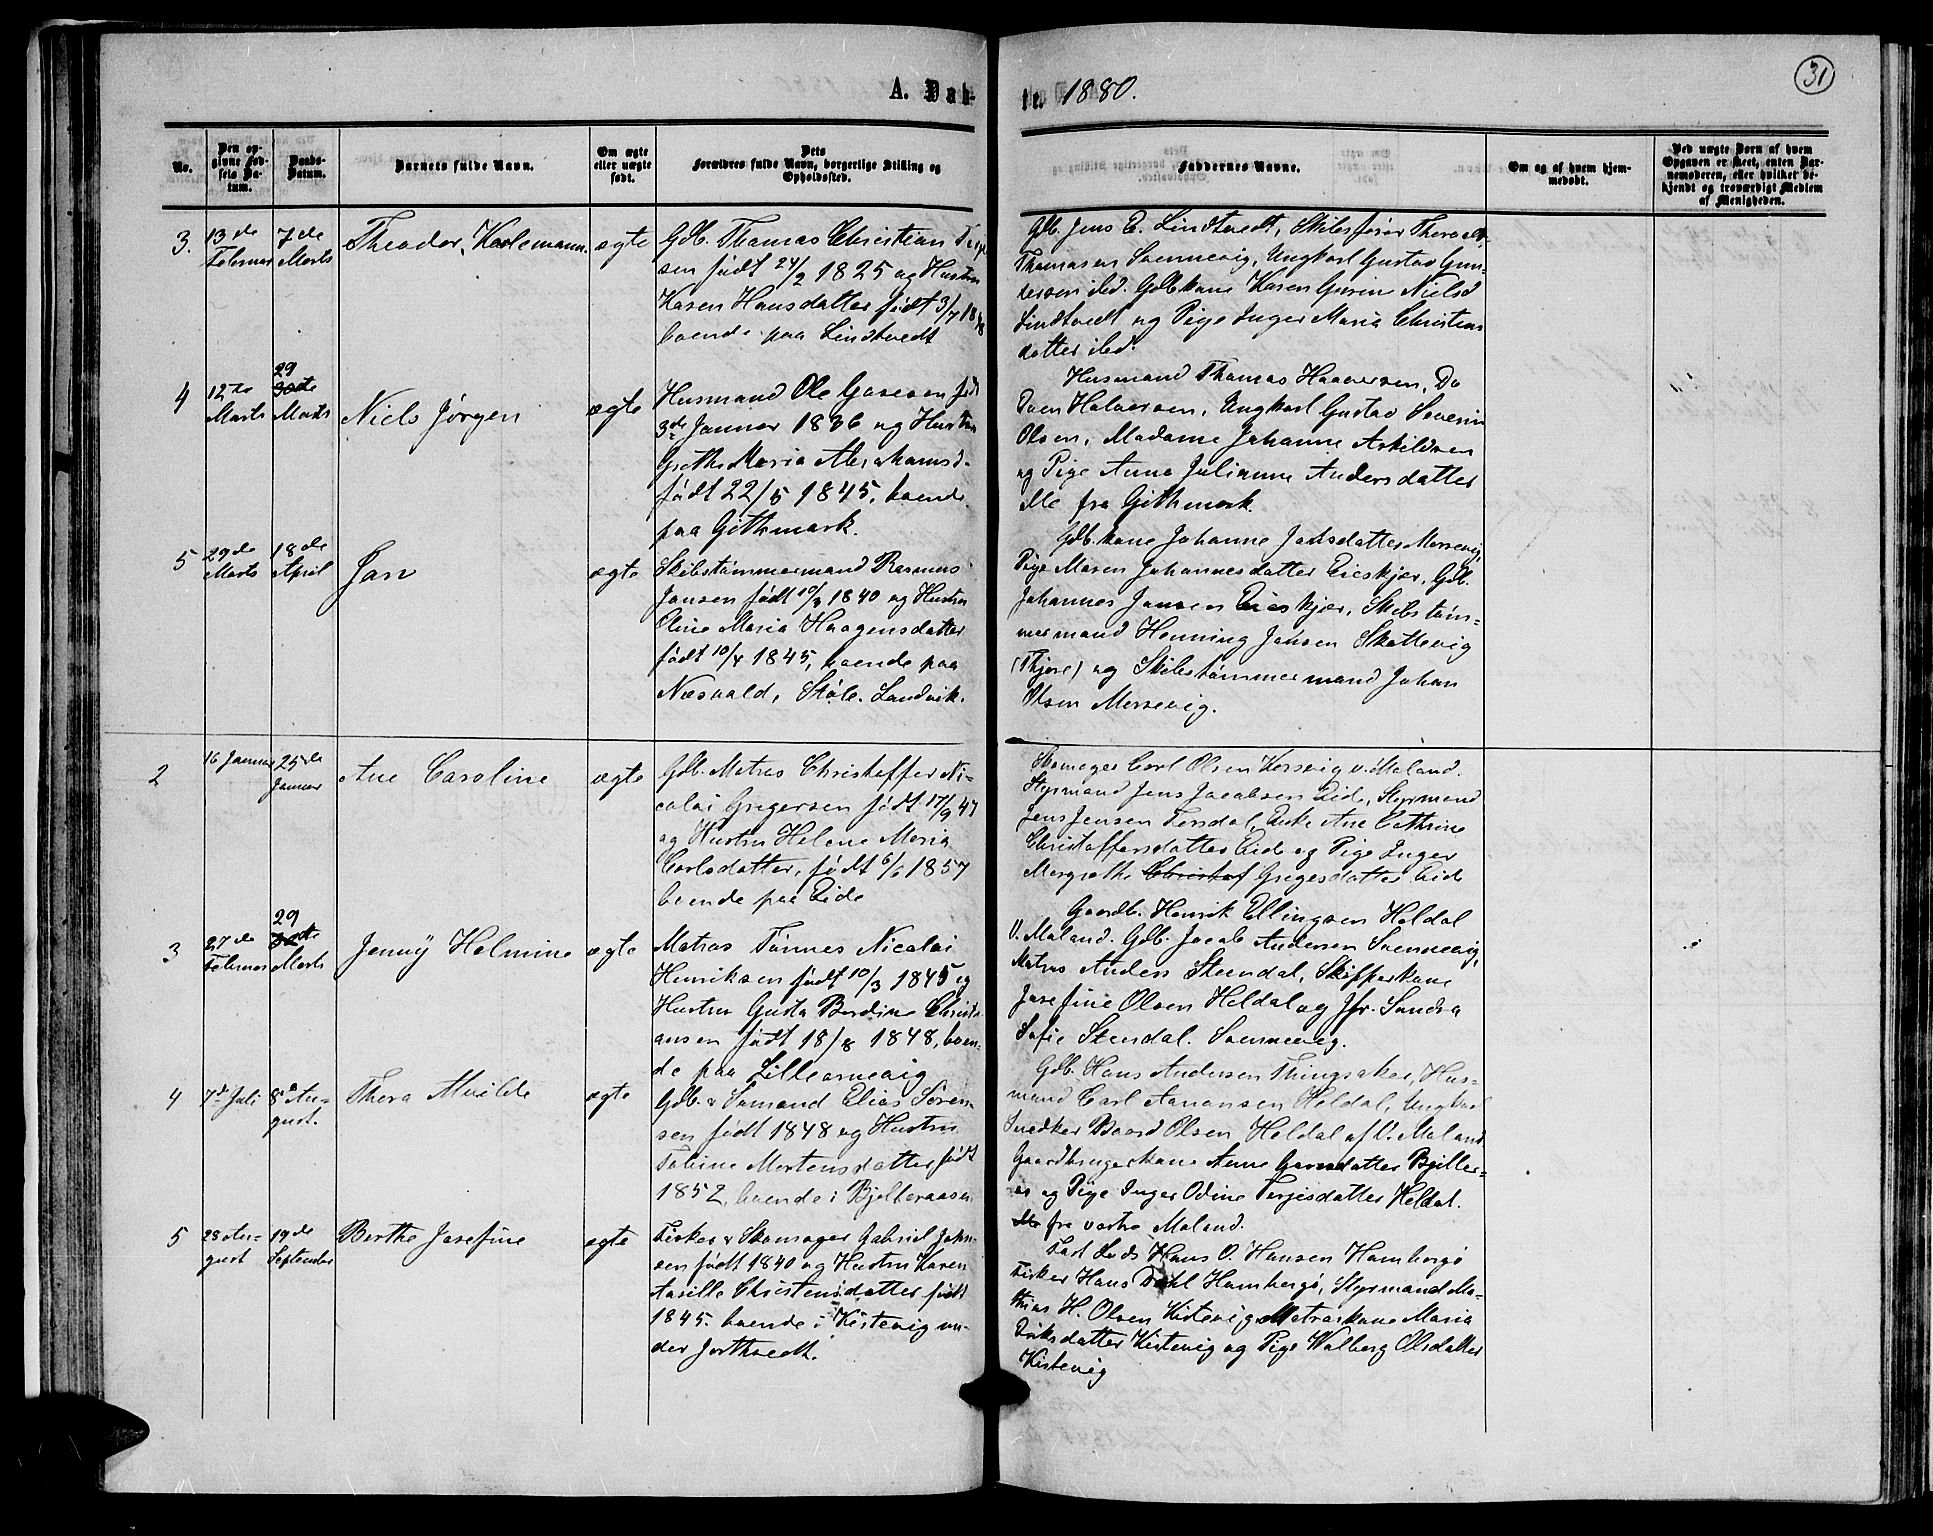 A. Dab-
te. 1880.
31
No.
Den op-
givne Fød-
sels Da-
tum.
Daabs-
Datum.
Barnets fulde Navn.
Om ægte
eller uægte
født.
Dets
Forældres fulde Navn, borgerlige Stilling og
Opholdssted.
Faddernes Navne.
Om og af hvem hjem-
medøbt.
Ved uægte Børn af hvem
Opgaven er skeet, enten Bar-
nemoderen, eller hvilket be-
kjendt og troværdigt Medlem
af Menigheden.
3. 13de
Februar
7de
Marts
Theodor, Karlemann.
ægte
Gdb. Thomas Christian
sen født 24/2 1825 og Hustru
Karen Hansdatter født 3/7 18
boende paa Lindtvedt
Gdb. Jens C. Lindtvedt, Skibsfører
Thomasen Svennevig, Ungkarl Gustav Gun-
dersen ibd. Gdb.kone Karen Gurine Nielsd
Lindtvedt og Pige Inger Maria Christians
datter ibd.
4
12te
Marts
29
30te
Marts
Niels Jørgen
ægte
Husmand Ole Gosesen født
3de Januar 1836 og Hustru
Grethe Maria Abrahamsd.
født 22/5 1845, boende
paa Githmark.
Husmand Thomas Haaversen, Do
Sven Halversen, Ungkarl Gustav Severin
Olsen, Madame Johanne Askildsen
og Pige Anna Julianne Andersdatter
alle fra Githmark.
5
29de
Marts
18de
April
Jan
ægte
Skibstømmermand Rasmus
Jansen født 10/3 1840 og Hustru
Oline Maria Haagensdatter
født 10/4 1845, boende paa
Næsvald, Støle. Landvik.
Gdb.kone Johanne Jansdatter Morsevig,
Pige Maren Johannesdatter Eieskjær, Gdb.
Johannes Jansen Eieskjær, Skibstøm-
mermand Henning Jansen Skottevig
(Thjøre) og Skibstømmermand Johan
Olsen Morsevig.
2
16 Januar
25de
Januar
Ane Caroline
ægte
Gdb. Matros Christoffer Ni-
colai Gregersen født 17/9 47
og Hustru Helene Maria
Carlsdatter, født 6/6 1857
boende paa Eide
Skomager Carl Olsen Korsvig v. Maland.
Styrmand Jens Jacobsen Eide, Styrmand
Jens Jensen Torsdal, Enke Ane Cathrine
Christoffersdatter Eide og Pige Inger
Margrethe Christof Gregesdatter Eide
3
27de
Februar
29
30te
Marts
Jenny Helmine
ægte
Matros Tønnes Nicolai
Henriksen født 10/3 1845 og
Hustru Gusta Berdine Christi
ansen født 18/8 1848, boen-
de paa Lillesmevig
Gaardb. Henrik Ellingsen Heldal
V. Maland. Gdb. Jacob Andersen Svennevig,
Matros Anders Stendal, Skipperkone
Josefine Olsen Heldal og Jfr. Sandra
Sofie Stendal. Svennevig.
4
7de Juli
8de Au-
gust.
Thora Mailde
ægte
Gdb. & Sømand Elias Søren-
sen født 1848 og Hustru
Tobine Mortensdatter født
1852, boende i Bjelleraasen
Gdb. Hans Andersen Thingsaker, Hus-
mand Carl Aanonsen Heldal, Ungkarl
Snedker Baard Olsen Heldal af V. Maland
Gaardbrugerkone Anne Gunsdatter Bjeller-
as og Pige Inger Odine Terjesdatter Heldal.
fra vestre Maland.
5
28 Au-
gust
19de
September
Berthe Josefine
ægte
Fisker & Skomager Gabriel John-
sen født 1840 og Hustru Karen
Aasille Christensdatter født
1845. boende i Kistevig un-
der Jorthvedt.
Fast Lods Hans O. Hansen Hamborgø
Fisker Hans Dahl Hambergø, Styrmand Ma-
thias H. Olsen Kistevig Matroskone Maria
Eriksdatter Kistevig og Pige Walberg Olsdatter
Kistevig